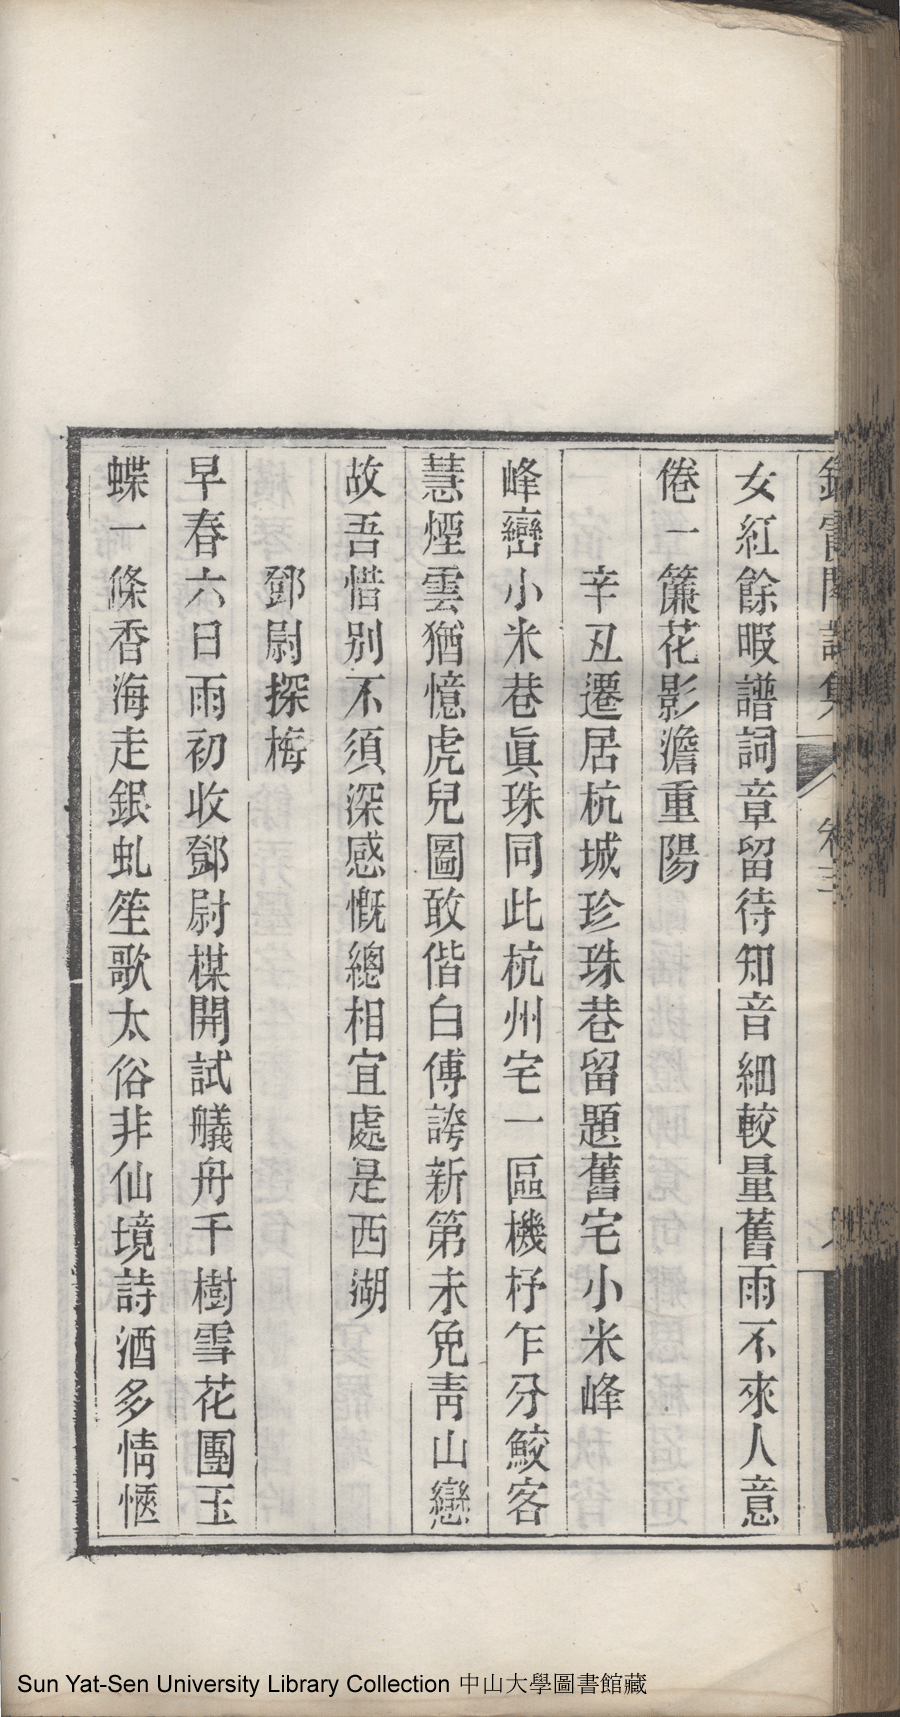 女紅餘暇譜詞章留待知音細較量舊雨不來人意
倦一簾花影澹重陽
辛丑遷居杭城珍珠巷留題舊宅小米峰
峰巒小米巷眞珠同此杭州宅一區機杼乍分鮫客
慧煙雲猶憶虎兒圖敢偕白傅誇新第未免靑山戀
故吾惜別不須深感慨總相宜處是西湖
鄧尉探梅
早春六日雨初收鄧尉楳開試艤舟千樹雪花團玉
蝶一條香海走銀虬笙歌太俗非仙境詩酒多情愜
Sun Yat-Sen University Library Collection 中山大學圖書館藏